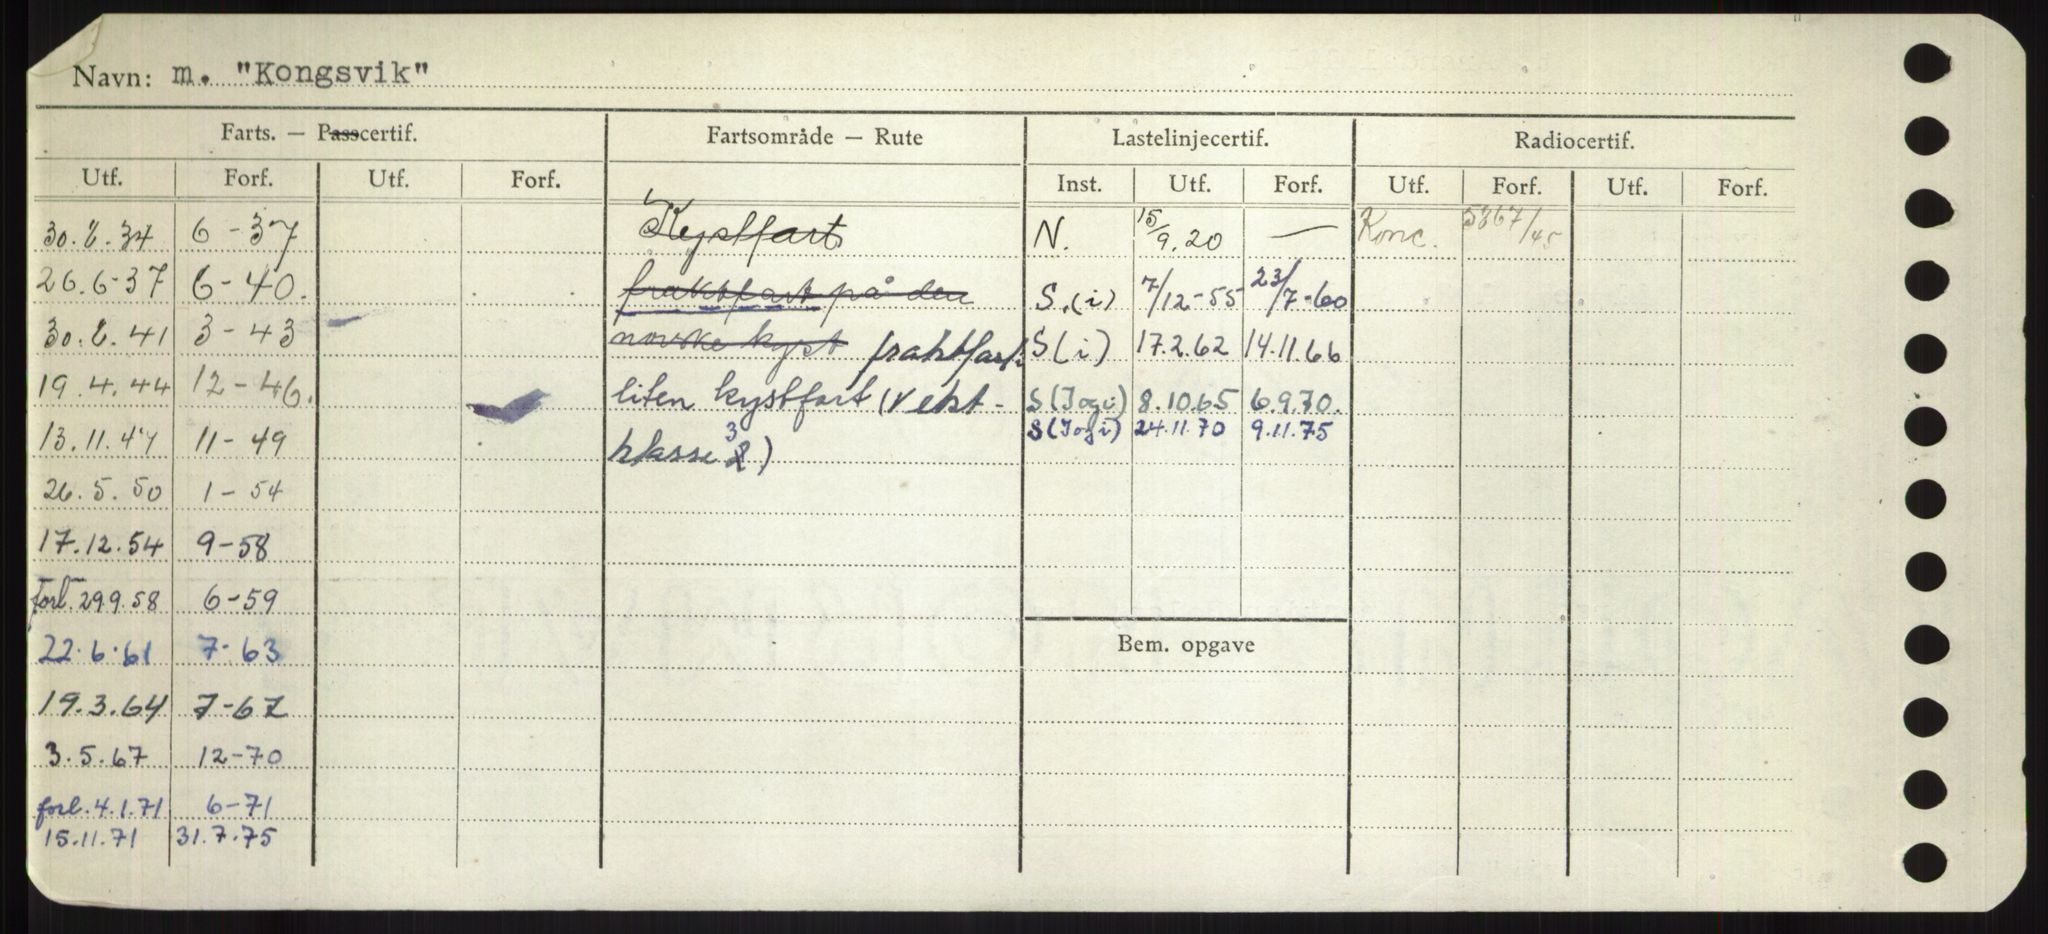 Navn: m. "Kongsvik"
Farts. — Passcertif. Fartsområde — Rute Lastelinjecertif. Radiocertif.
Utf. Forf. Utf. Forf. Inst. Utf. Forf. Utf. Forf. Utf. Forf.
30.8.34 6-37 Kystfart N. 15/9.20 — Konc. 5367/45
26.6-37 6-40. fraktfart på den S.(i) 7/12-55 23/7-60
30.8.41 3-43 norske kyst fraktfart. S(i) 17.2.62 14.11.66
19.4.44 12-46. liten kystfart (vekt- S(Jogi) 8.10.65 6.9.70.
13.11.47 11-49 klasse 3) S(Jogi) 24.11.70 9.11.75
26.5.50 1-54
17.12.54 9-58
forl. 29.9.58 6-59
22.6.61 7-63
Bem. opgave
19.3.64 7-67
3.5.67 12-70
forl. 4.1.71 6-71
15.11.71 31.7.75